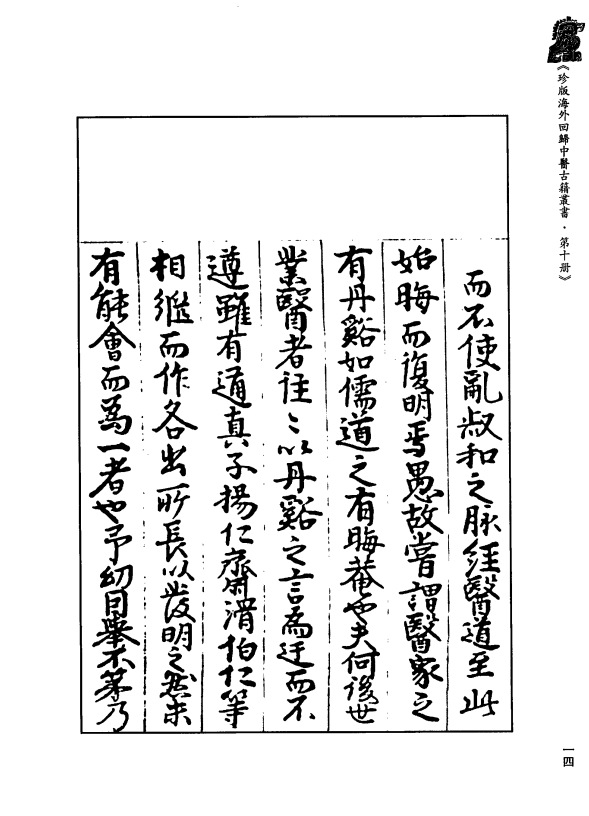 《珍版海外回歸中醫古籍叢書·第十册》
而不使亂叔和之脉經醫道至此
始晦而復明焉愚故嘗謂醫家之
有丹谿如儒道之有晦菴也夫何後世
業醫者往〻以丹谿之言為迂而不
遵雖有通真子揚仁齋滑伯仁等
相繼而作各出所長以發明之然未
有能會而爲一者也予幼因舉不第乃
一四